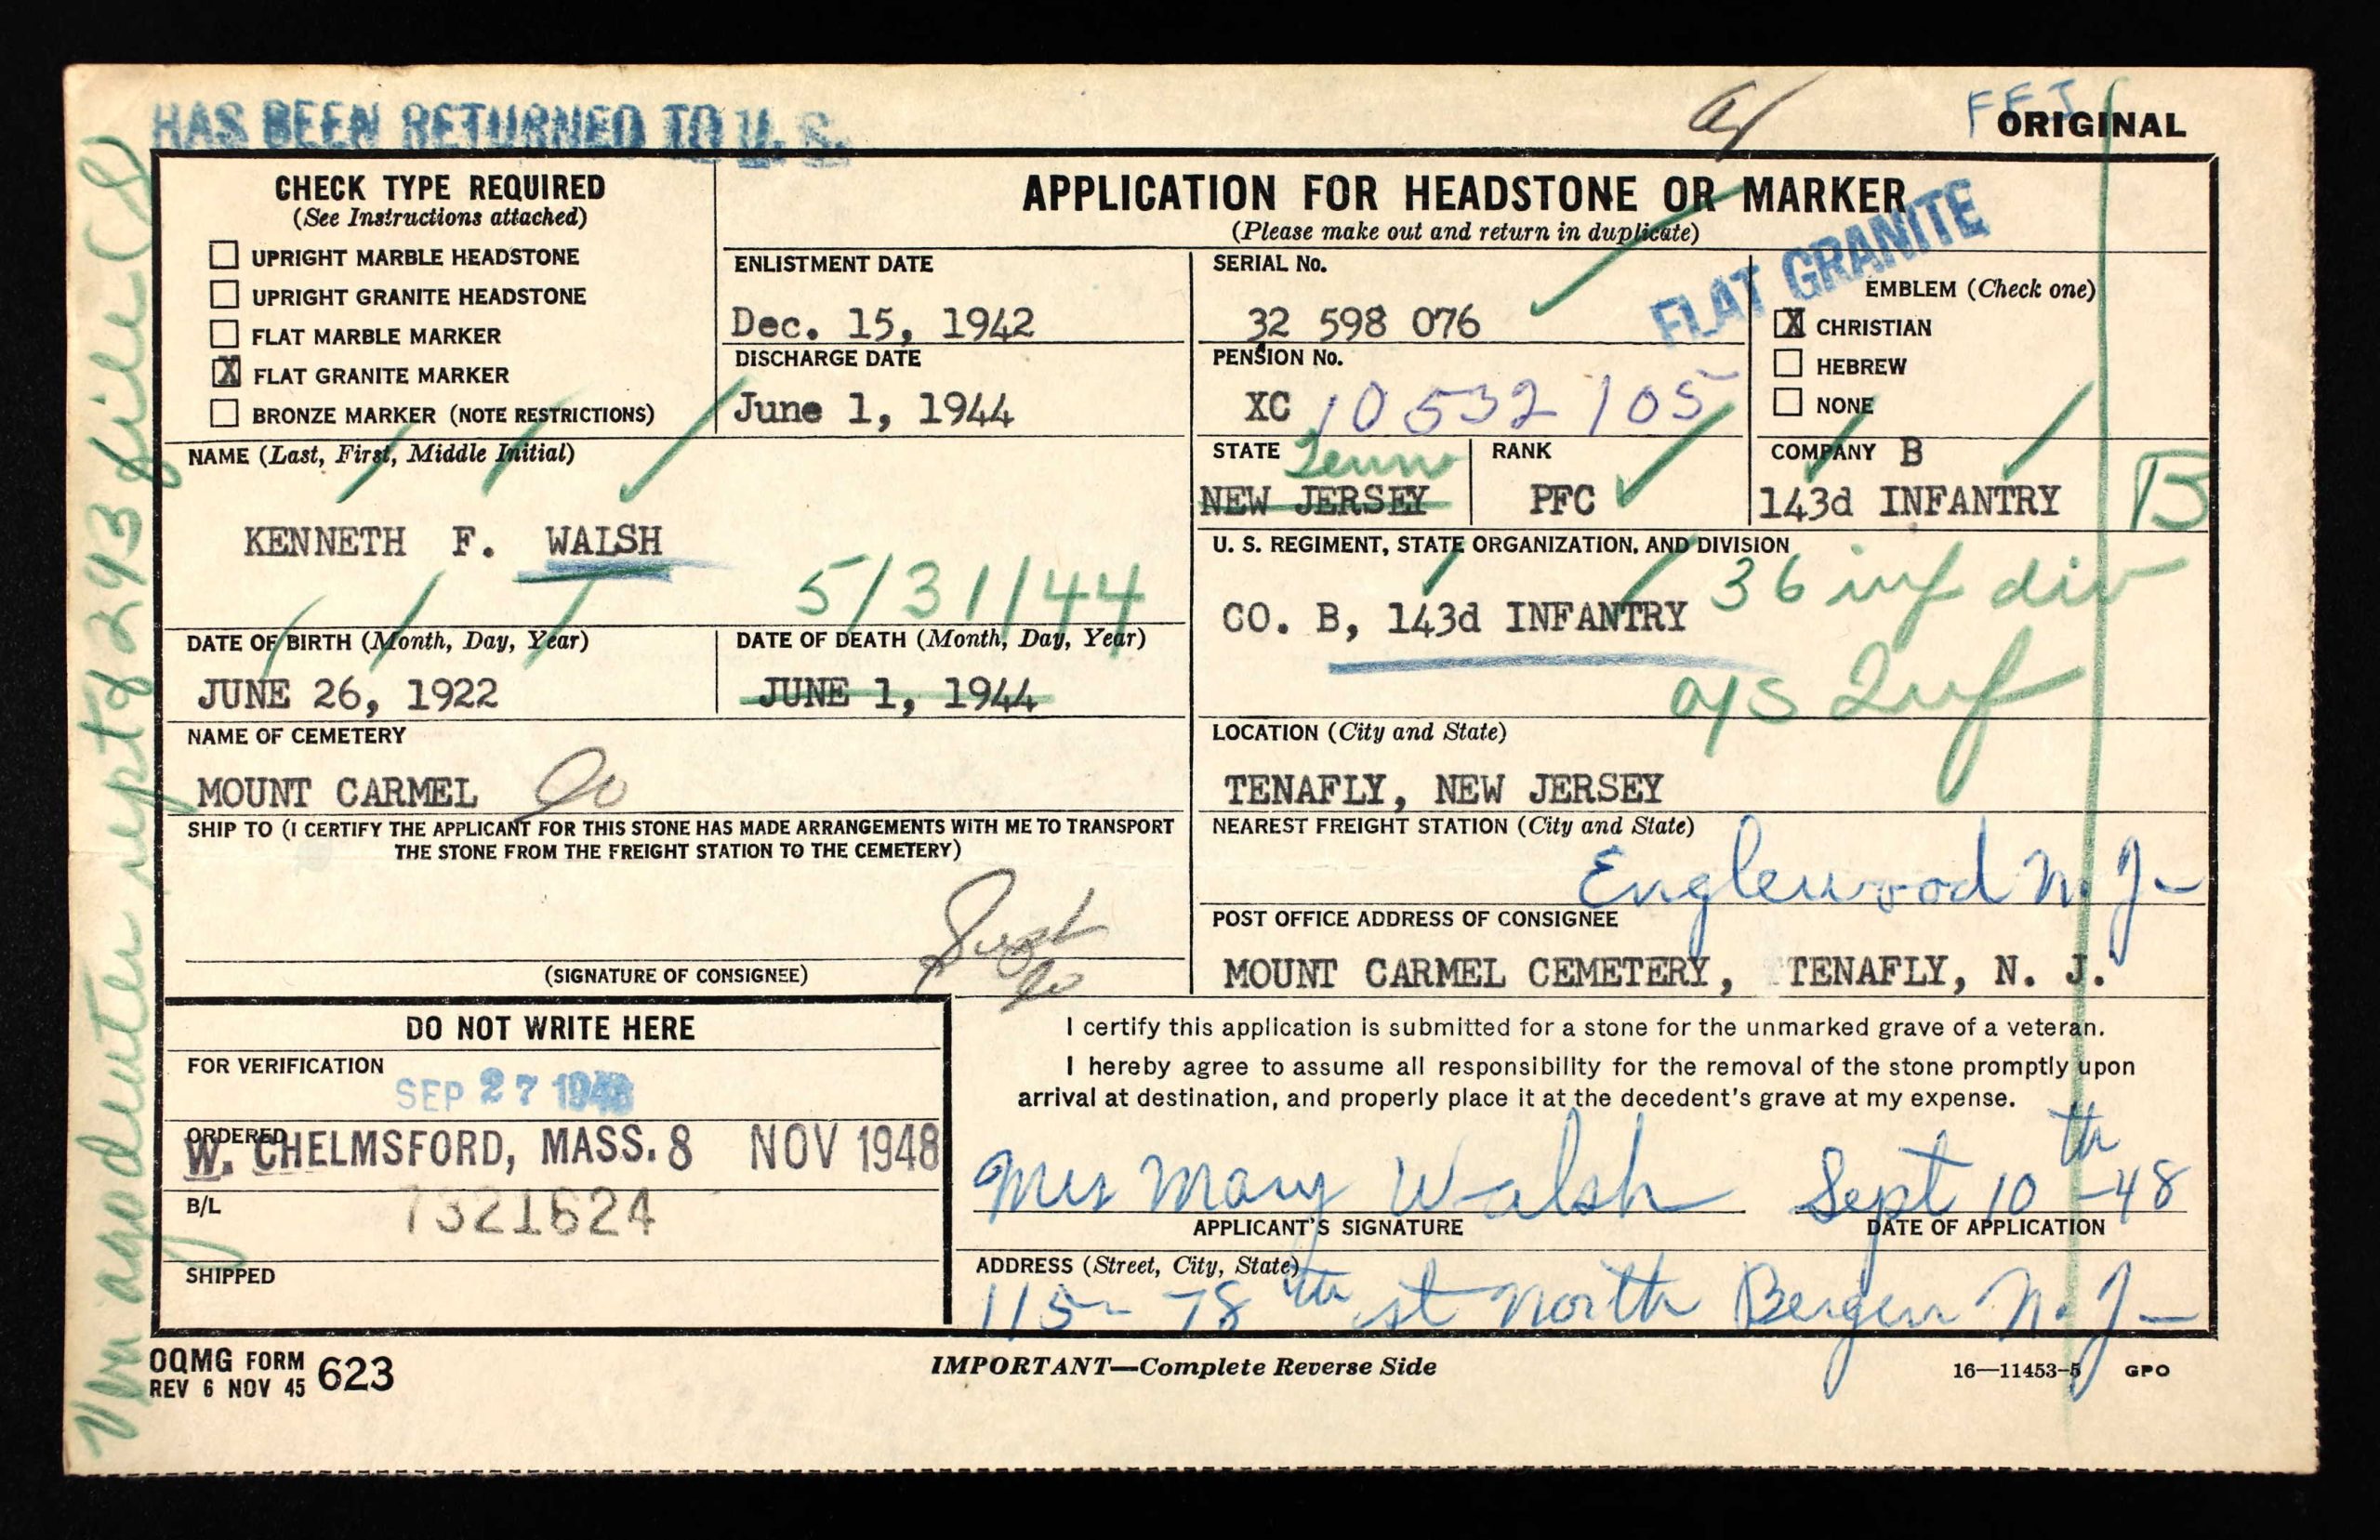 HAS BEEN RETURNED TO U. S.
FFJ
ORIGINAL
CHECK TYPE REQUIRED
(See Instructions attached)
UPRIGHT MARBLE HEADSTONE
UPRIGHT GRANITE HEADSTONE
FLAT MARBLE MARKER
X FLAT GRANITE MARKER
BRONZE MARKER (NOTE RESTRICTIONS)
APPLICATION FOR HEADSTONE OR MARKER
(Please make out and return in duplicate)
FLAT GRANITE
ENLISTMENT DATE
Dec. 15, 1942
DISCHARGE DATE
June 1, 1944
SERIAL No.
32 598 076
PENSION No.
XC 10532105
EMBLEM (Check one)
X CHRISTIAN
HEBREW
NONE
NAME (Last, First, Middle Initial)
KENNETH F. WALSH
STATE
NEW JERSEY
RANK
PFC
COMPANY B
143d INFANTRY
B
U. S. REGIMENT, STATE ORGANIZATION, AND DIVISION
CO. B, 143d INFANTRY 36 inf div
5/31/44
DATE OF BIRTH (Month, Day, Year)
JUNE 26, 1922
DATE OF DEATH (Month, Day, Year)
JUNE 1, 1944
NAME OF CEMETERY
MOUNT CARMEL
LOCATION (City and State)
TENAFLY, NEW JERSEY
SHIP TO (I CERTIFY THE APPLICANT FOR THIS STONE HAS MADE ARRANGEMENTS WITH ME TO TRANSPORT
THE STONE FROM THE FREIGHT STATION TO THE CEMETERY)
(SIGNATURE OF CONSIGNEE)
NEAREST FREIGHT STATION (City and State)
Englewood N. J-
POST OFFICE ADDRESS OF CONSIGNEE
MOUNT CARMEL CEMETERY, TENAFLY, N. J.
DO NOT WRITE HERE
FOR VERIFICATION
SEP 27 1948
ORDERED
W. CHELMSFORD, MASS. 8 NOV 1948
B/L
7321624
SHIPPED
I certify this application is submitted for a stone for the unmarked grave of a veteran.
I hereby agree to assume all responsibility for the removal of the stone promptly upon
arrival at destination, and properly place it at the decedent's grave at my expense.
Mrs Mary Walsh Sept 10th -48
APPLICANT'S SIGNATURE
DATE OF APPLICATION
ADDRESS (Street, City, State)
115- 78th st North Bergen N. J-
OQMG FORM 623
REV 6 NOV 45
IMPORTANT—Complete Reverse Side
16—11453-5 GPO